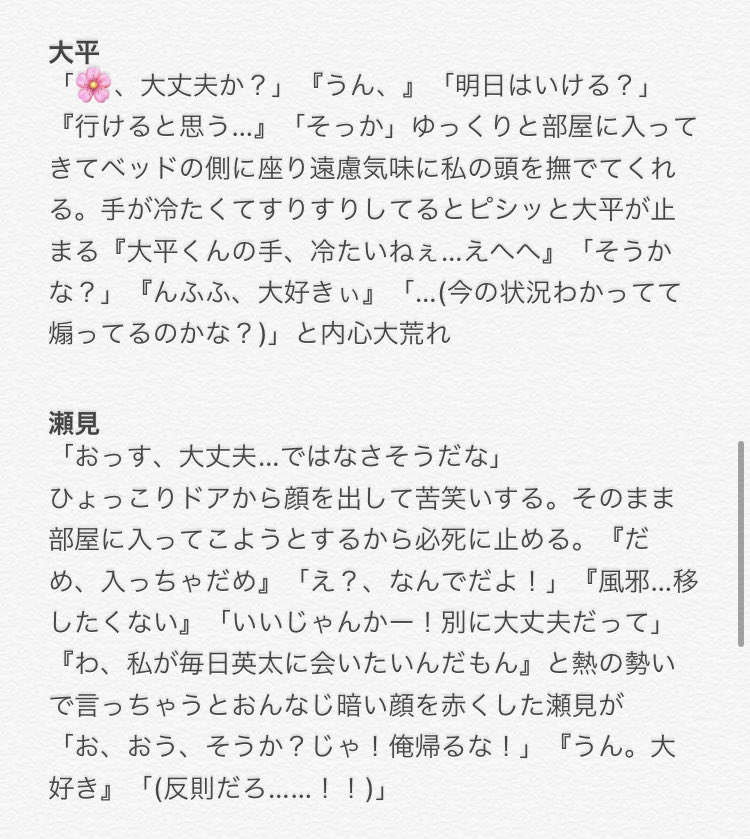 大平
「🌸、大丈夫か？」『うん、』「明日はいける？」
『行けると思う...』「そっか」ゆっくりと部屋に入って
きてベッドの側に座り遠慮気味に私の頭を撫でてくれ
る。手が冷たくてすりすりしてるとピシッと大平が止
まる『大平くんの手、冷たいねぇ...えへへ』「そうか
な？」『んふふ、大好きぃ』「...(今の状況わかってて
煽ってるのかな？)」と内心大荒れ
瀬見
「おっす、大丈夫...ではなさそうだな」
ひょっこりドアから顔を出して苦笑いする。そのまま
部屋に入ってこようとするから必死に止める。『だ
め、入っちゃだめ』「え？、なんでだよ！」『風邪...移
したくない』「いいじゃんかー！別に大丈夫だって」
『わ、私が毎日英太に会いたいんだもん』と熱の勢い
で言っちゃうとおんなじ暗い顔を赤くした瀬見が
「お、おう、そうか？じゃ！俺帰るな！」『うん。大
好き』「(反則だろ......！！)」